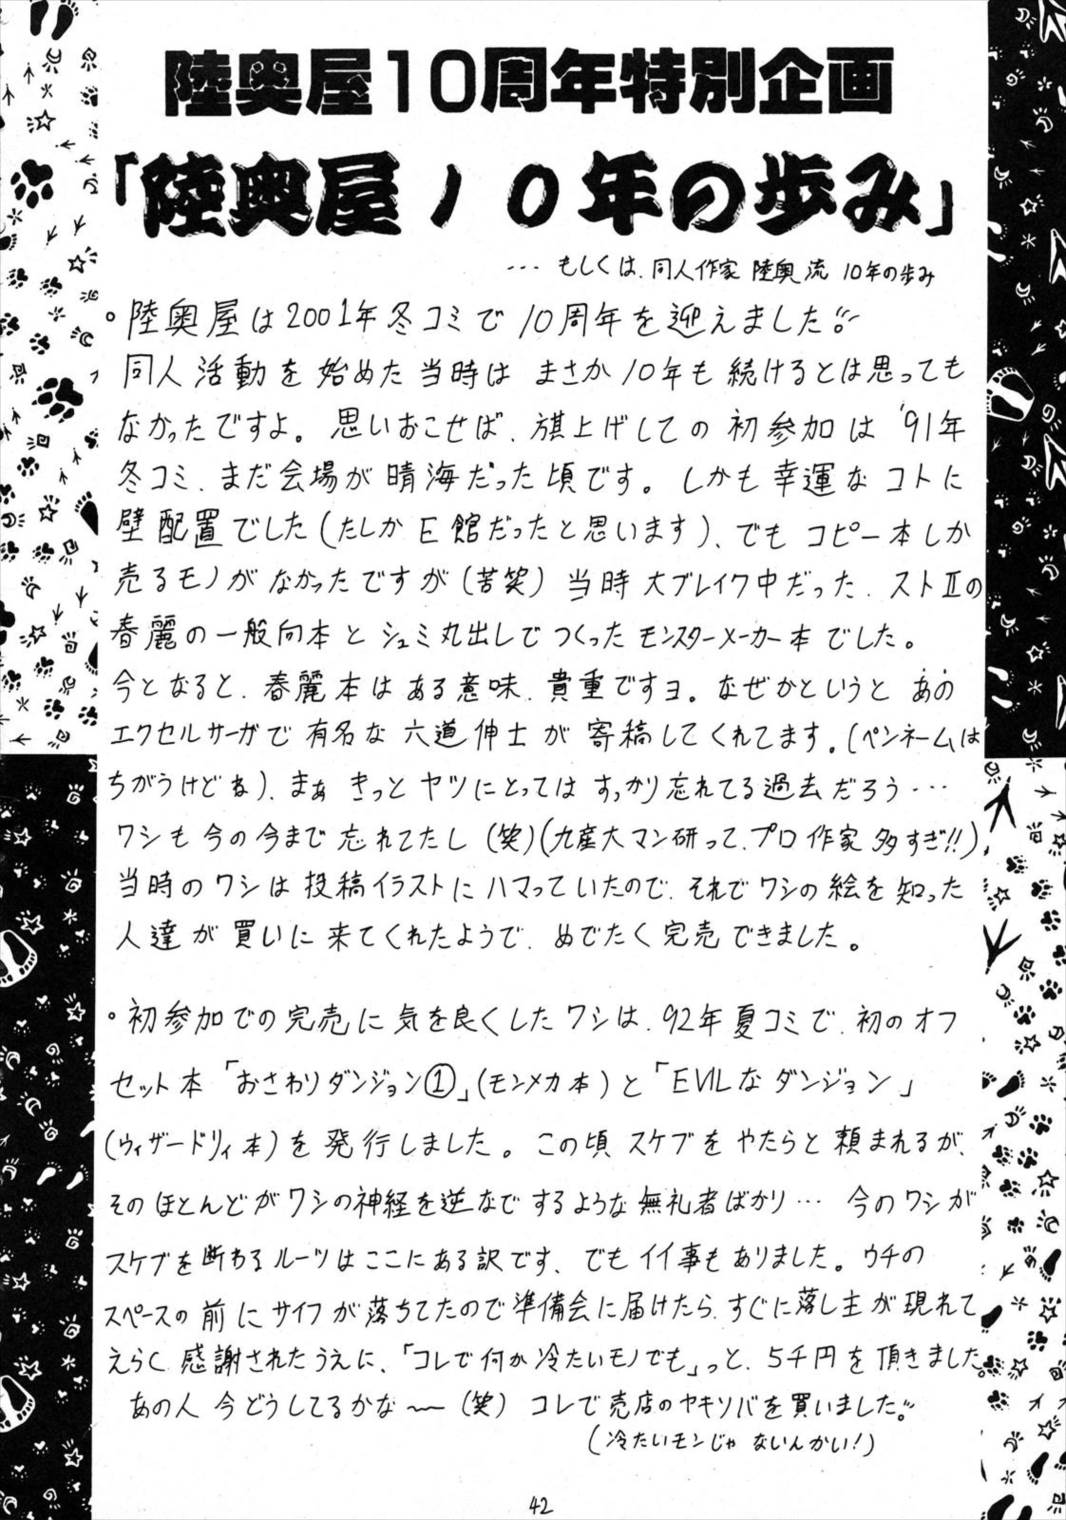 陸奥屋10周年特別企画
「陸奥屋10年の歩み」
･･･ もしくは、同人作家 陸奥 流 10年の歩み
○陸奥屋は2001年冬コミで10周年を迎えました!!
同人活動を始めた当時は まさか10年も続けるとは思っても
なかったですよ。思いおこせば、旗上げしての初参加は'91年
冬コミ、まだ会場が晴海だった頃です。しかも幸運なコトに
壁配置でした(たしかE館だったと思います)、でもコピー本しか
売るモノがなかったですが(苦笑)当時大ブレイク中だった、ストⅡの
春麗の一般向本とシュミ丸出しでつくったモンスターメーカー本でした。
今となると、春麗本はある意味、貴重ですヨ。なぜかというとあの
エクセルサーガで有名な六道伸士が寄稿してくれてます。(ペンネームは
ちがうけどね)、まぁきっとヤツにとってはすっかり忘れてる過去だろう･･･
ワシも今の今まで忘れてたし(笑)(九産大マン研って、プロ作家多すぎ!!)
当時のワシは投稿イラストにハマっていたので、それでワシの絵を知った
人達が買いに来てくれたようで、めでたく完売できました。
○初参加での完売に気を良くしたワシは、92年夏コミで、初のオフ
セット本「おさわりダンジョン①」(モンメカ本)と「EVILなダンジョン」
(ウィザードリィ本)を発行しました。この頃スケブをやたらと頼まれるが、
そのほとんどがワシの神経を逆なでするような無礼者ばかり･･･ 今のワシが
スケブを断わるルーツはここにある訳です、でもイイ事もありました。ウチの
スペースの前にサイフが落ちてたので準備会に届けたら、すぐに落し主が現れて
えらく感謝されたうえに、「コレで何か冷たいモノでも」っと、5千円を頂きました。
あの人今どうしてるかな〜(笑)コレで売店のヤキソバを買いました!!
(冷たいモンじゃないんかい!)
42